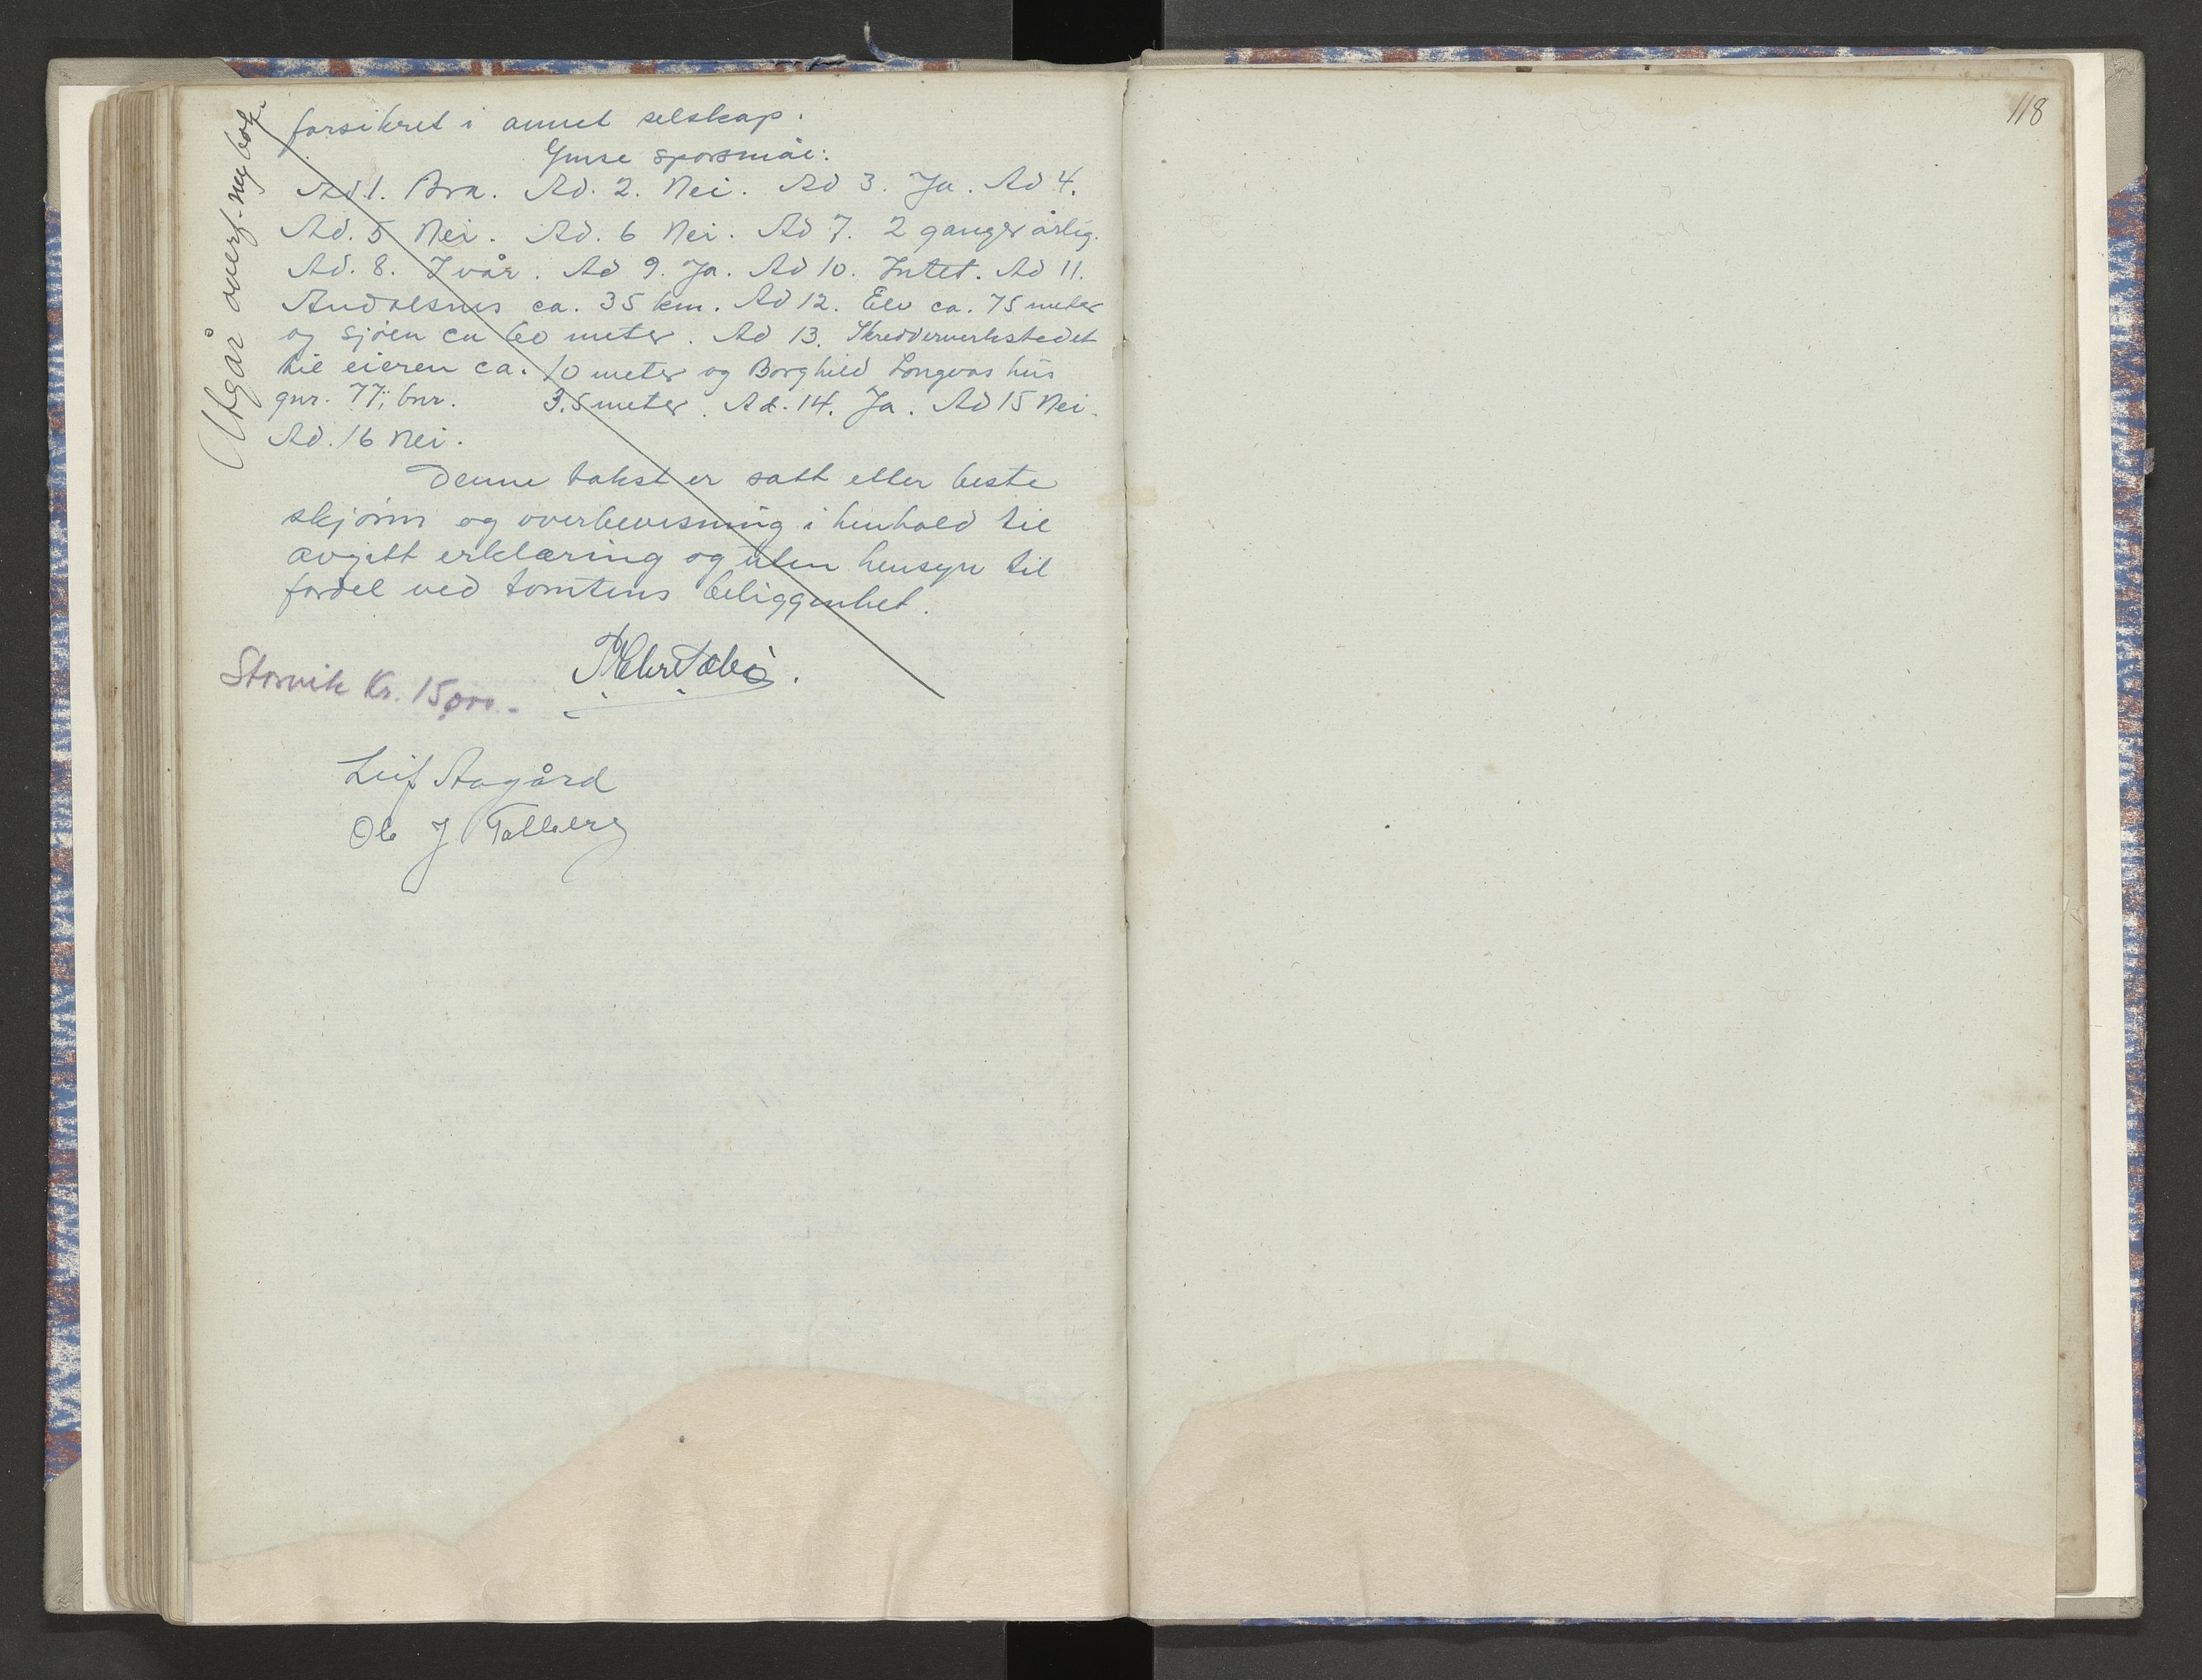 118
Utgår overf. ny bok
forsikret i annet selskap.
spørsmål:
Ad. 1. Bra. Ad. 2. Nei. Ad 3. Ja. Ad 4.
Ad. 5 Nei. Ad. 6 Nei. Ad 7. 2 ganger årlig.
Ad. 8. I vår. Ad 9. Ja. Ad 10. Intet. Ad 11.
Åndalsnes ca. 35 km. Ad 12. Elv ca. 75 meter
og sjøen ca 60 meter. Ad 13. Skredderverkstedet
til eieren ca. 10 meter og Borghild Longvas hus
gnr. 77, bnr. 3.5 meter. Ad. 14. Ja. Ad 15 Nei.
Ad. 16 Nei.
Denne takst er satt etter beste
skjønn og overbevisning i henhold til
avgitt erklæring og uten hensyn til
fordel ved tomtens beliggenhet.
Storvik Kr. 15,000.-
Leif Aagård
Ole J Talberg